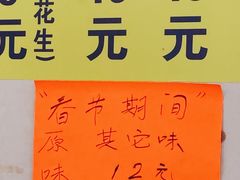 花生)
元 元 元
"春节期间"
原 其它味
味 12元